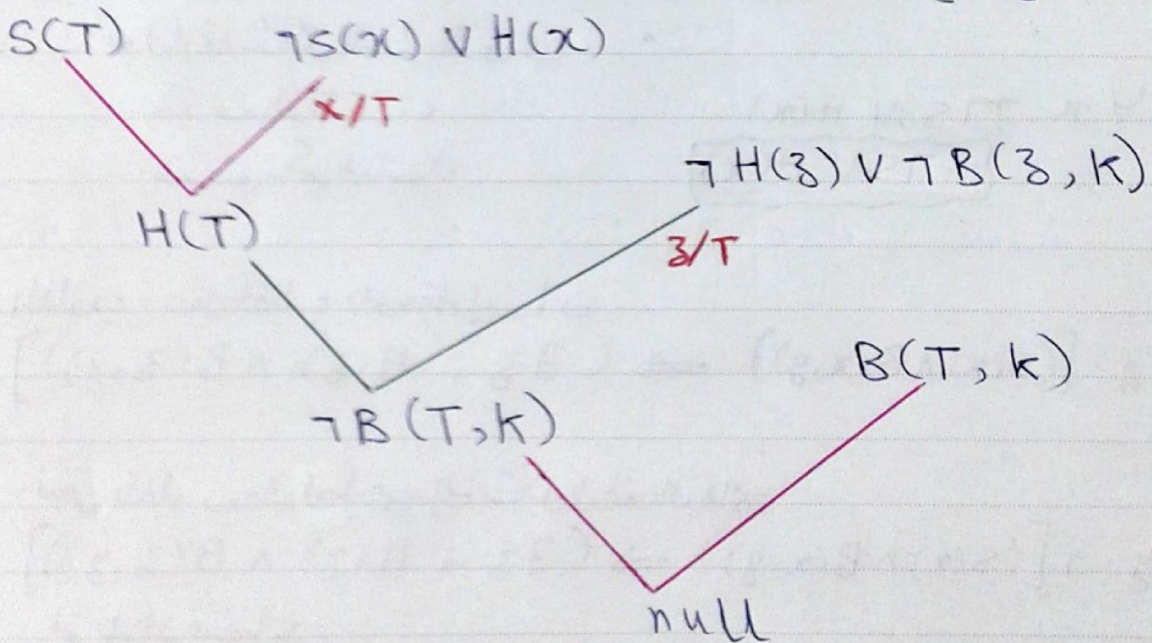 S(T)    ¬S(x) ∨ H(x)
x/T
¬H(z) ∨ ¬B(z, K)
H(T)
z/T
B(T, K)
¬B(T, K)
null